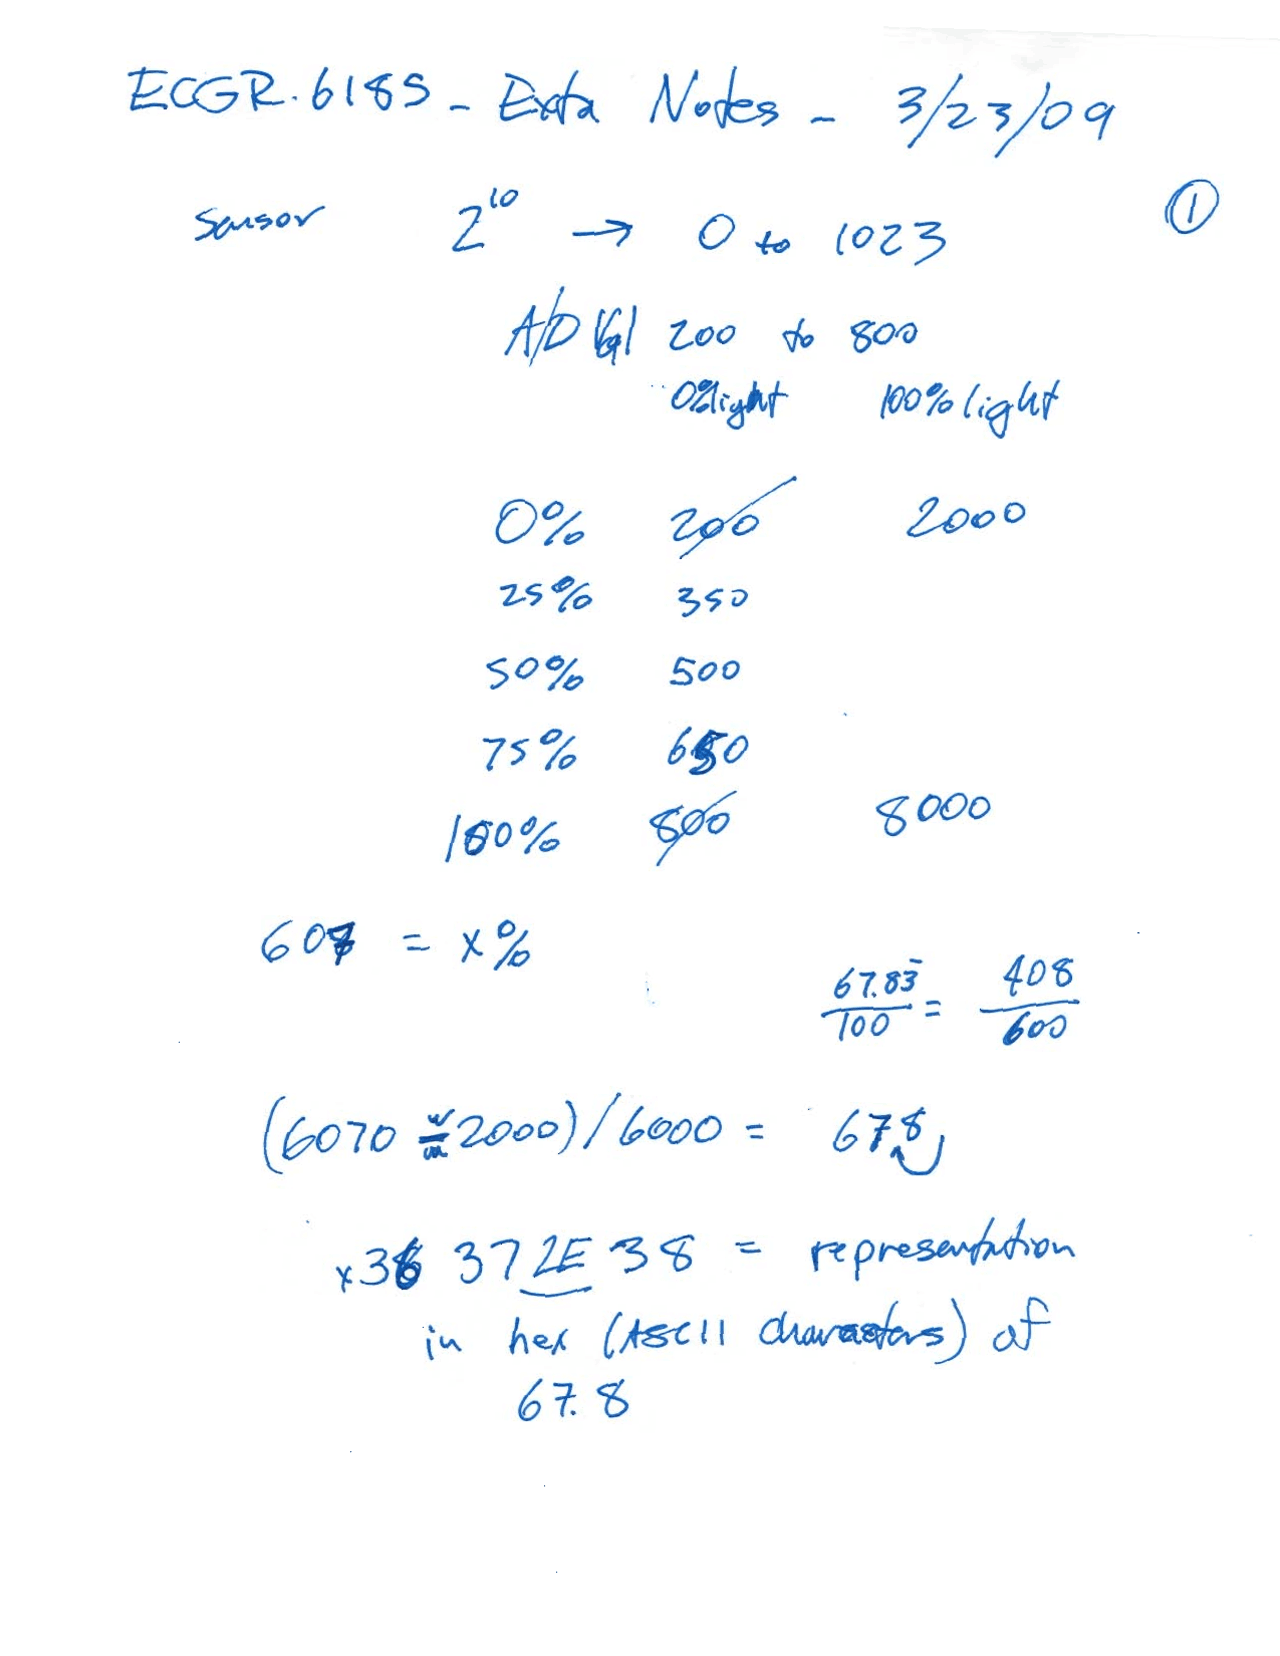 ECGR.6185 - Exta Notes - 3/23/09
①
Sensor 2^10 → 0 to 1023
A/D Val 200 to 800
0% light 100% light
0% 200 2000
25% 350
50% 500
75% 650
100% 800 8000
607 = x%
67.83̄/100 = 408/600
(6070 - 2000)/6000 = 67.8
x36 37 2E 38 = representation
in hex (ASCII characters) of
67.8